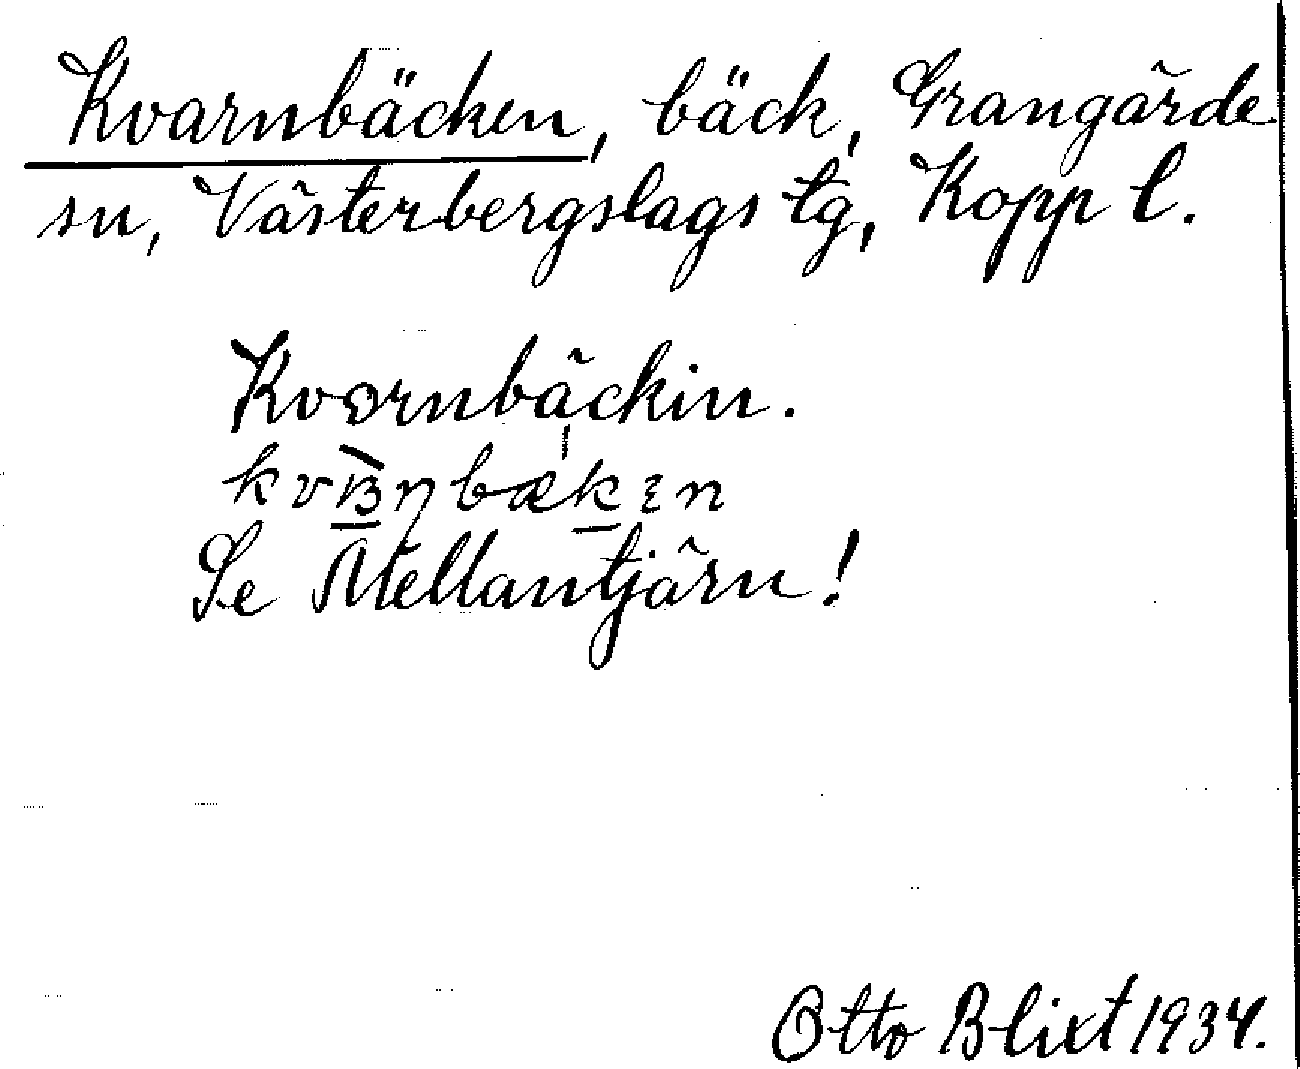 Kvarnbäcken, bäck, Grangärde
sn, Västerbergslags tg, Kopp l.
Kvornbäckin.
Se Mellantjärn!
Otto Blixt 1934.